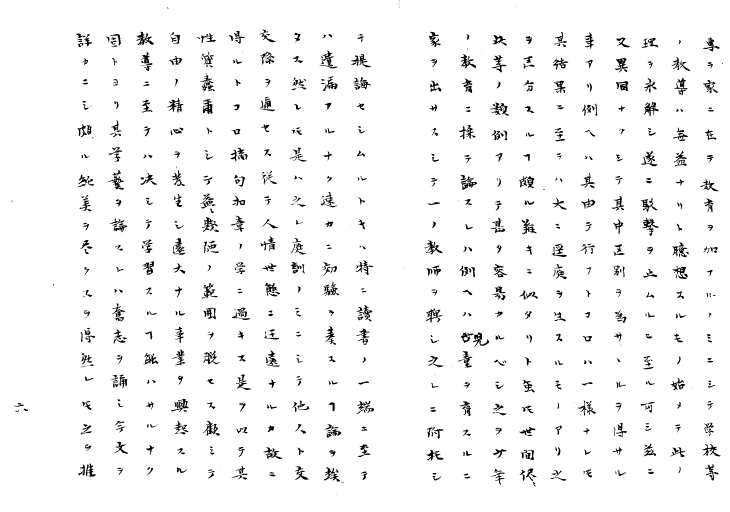 専ラ家ニ在テ教育ヲ加フルノミニシテ学校等
ノ教導ハ毎益ナリト臆想スルモノ始メテ此ノ
理ヲ氷解シ遂ニ駁撃ヲ止ムルニ至ル可シ茲ニ
又異同ナクシテ其中区別ヲ為サヽルヲ得サル
事アリ例ヘハ其由テ行フトコロハ一様ナレモ
其結果ニ至テハ大ニ逕庭ヲ生スルモノアリ之
ヲ区分スルヿ頗ル難キニ似タリト虽モ世間侭
此等ノ数例アリテ甚タ容易カルヘシ之ヲ少年
ノ教育ニ採テ論スレハ例ヘハ児童ヲ育スルニ
家ヲ出サスシテ一ノ教師ヲ聘シ之レニ附托シ
テ提誨セシムルトキハ特ニ読書ノ一端ニ至テ
ハ遺漏アルナク速カニ効験ヲ奏スルヿ論ヲ竢
タス然レモ是ハ之レ庭訓ノミニシテ他人ト交
交際ヲ通セス従テ人情世態ニ迂遠ナルカ故ニ
得ルトコロ摘句和章ノ学ニ過キス是ヲ以テ其
性質蠢爾トシテ益敷陋ノ範囲ヲ脱セス顧ミテ
自由ノ精心ヲ発生シ遠大ナル事業ヲ興起スル
教導ニ至テハ决シテ学習スルヿ能ハサルナク
固トヨリ其学藝ヲ論スレハ奮志ヲ誦シ今文ヲ
詳カニシ頗ル純美ヲ尽クスヲ得然レモ之ヲ推
六